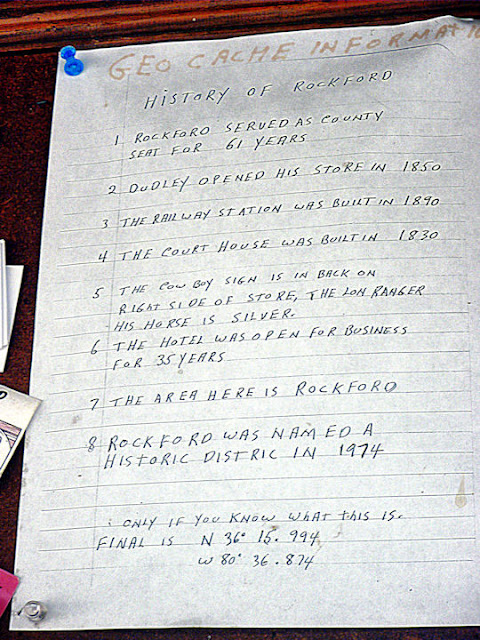 GEO CACHE INFORMATI
HISTORY OF ROCKFORD
1 ROCKFORD SERVED AS COUNTY
SEAT FOR 61 YEARS
2 DUDLEY OPENED HIS STORE IN 1850
3 THE RAILWAY STATION WAS BUILT IN 1890
4 THE COURT HOUSE WAS BUILT IN 1830
5 THE COW BOY SIGN IS IN BACK ON
RIGHT SIDE OF STORE, THE LON RANGER
HIS HORSE IS SILVER.
6 THE HOTEL WAS OPEN FOR BUSINESS
FOR 35 YEARS
7 THE AREA HERE IS ROCKFORD
8 ROCKFORD WAS NAMED A
HISTORIC DISTRIC IN 1974
: ONLY IF YOU KNOW WHAT THIS IS.
FINAL IS N 36° 15. 994
W 80° 36. 874